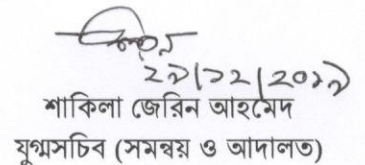 ২৯/১২/২০১৯
শাকিলা জেরিন আহমেদ
যুগ্মসচিব (সমন্বয় ও আদালত)